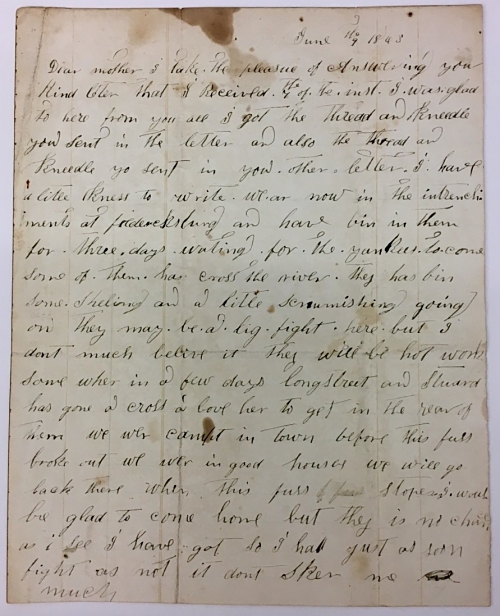 June the 7 1843
Dear mother I take the pleasue of Answering you
Kind leter that I Received. of te. inst. I was glad
to here from you all I got the thread and Kneedle
you sent in the letter and also the thread and
Kneedle yo sent in you other letter. I have
a litle to write. we ar now in the intrench
ments at and have bin in them
for three days wating for the yankees to come
some of them has cross the river they has bin
some Sheling and a little going
on they may be a big fight here but I
dont much belive it they will be hot work
some wher in a few days longstreet and Stuard
has gone a cross a bove her to get in the rear of
them we wer campt in town before this fuss
broke out we wer in good houses we will go
back there when this fuss stopes i would
be glad to come home but they is no chance
as i see I have got so I had just as soon
fight as not it dont me
much